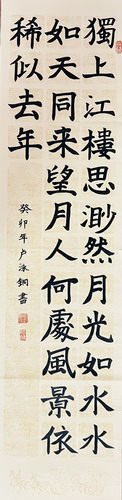 獨上江樓思渺然月光如水水
如天同来望月人何處風景依
稀似去年
癸卯年卢泳钢書